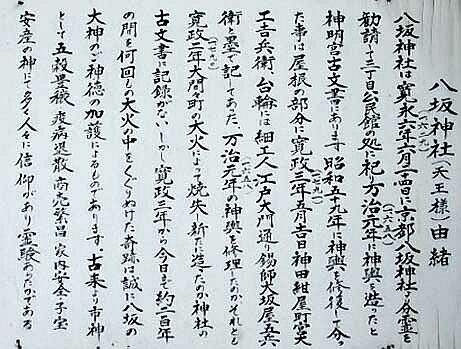 八坂神社(天王様)由緒
八坂神社は寛永六年六月二四日に京都八坂神社より分霊を
(一六二九)
勧請し十三丁目公民館の処に祀り万治元年に神輿を造ったと
(一六五八)
神明宮古文書にあります 昭和五十九年に神輿を修復して分っ
た事は屋根の部分に寛政三年五月吉日神田紺屋町宮大
(一七九一)
工吉兵衛、台輪には細工人江戸大門通り錫師大坂屋五兵
衛と墨で記してあった 万治元年の神輿を修理したのかそれとも
(一六五八)
寛政二年大間々町の大火によって焼失し新に造ったか神社の
(一七九〇)
古文書に記録がない しかし寛政三年から今日まで約二百年
の間を何回もの大火の中をくぐりぬけた奇跡は誠に八坂の
大神のご神徳の加護によるものであります。古来より市神
として五穀豊穣 疫病退散 商売繁昌 家内安全 子宝
安産の神にて多く人々に信仰があり霊験あらたかである